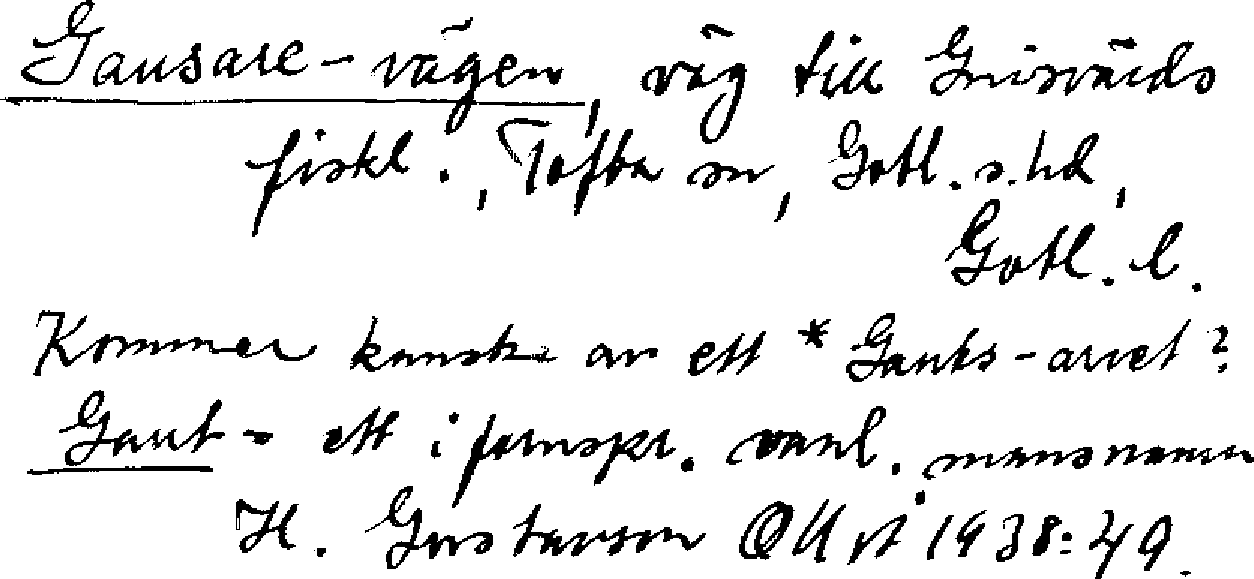 Gausare-vägen, väg till Gnisvärds
fiskl., Tofta sn, Gotl. s. hd,
Gotl. l.
Kommer kanske av ett *Gauts-arvet?
Gaut- ett i fornspr. vanl. mansnamn
H. Gustavson 1938:49.